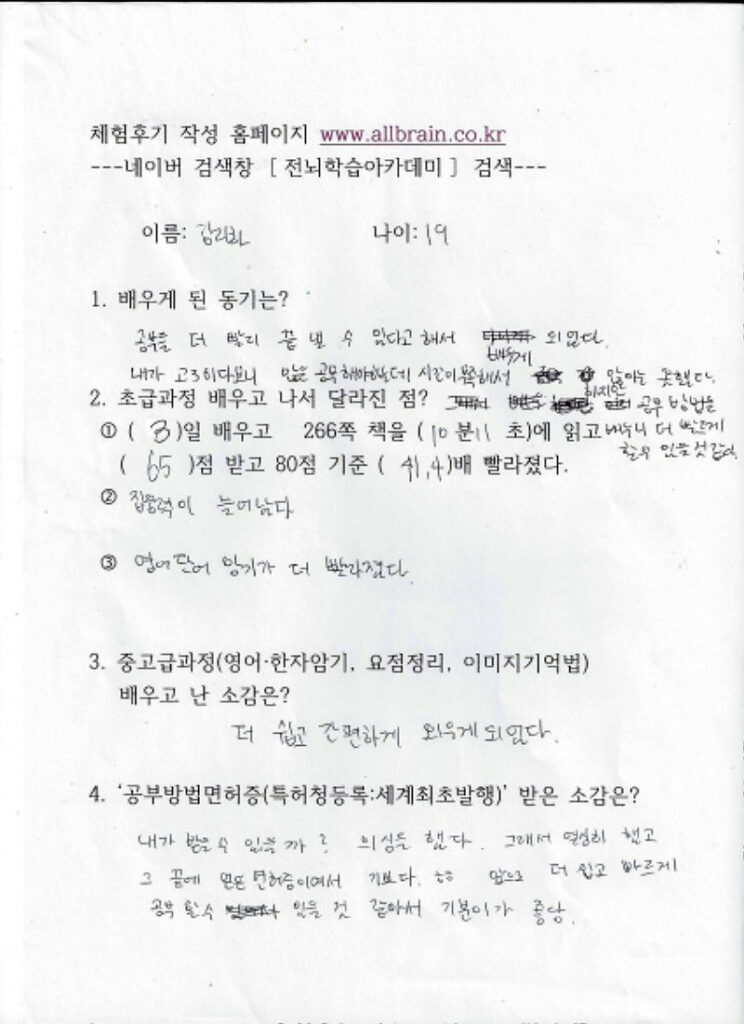 체험후기 작성 홈페이지 www.allbrain.co.kr
---네이버 검색창 [ 전뇌학습아카데미 ] 검색---
이름: 나이: 19
1. 배우게 된 동기는?
공부를 더 빨리 끝 낼 수 있다고 해서 배우게 되었다.
내가 고3이다보니 많은 공부해야하는데 시간이 부족해서 많이는 못했다.
2. 초급과정 배우고 나서 달라진 점? 하지만 공부 방법을
① ( 3 )일 배우고 266쪽 책을 ( 10 분 11 초)에 읽고 배우니 더 빠르게
( 65 )점 받고 80점 기준 ( 41,4 )배 빨라졌다. 할수 있을것 같다
② 집중력이 늘어났다
③ 영어단어 암기가 더 빨라졌다.
3. 중고급과정(영어·한자암기, 요점정리, 이미지기억법)
배우고 난 소감은?
더 쉽고 간편하게 외우게 되었다.
4. '공부방법면허증(특허청등록:세계최초발행)' 받은 소감은?
내가 받을 수 있을까? 의심을 했다. 그래서 열심히 했고
그 끝에 얻은 면허증이여서 기쁘다. 앞으로 더 쉽고 빠르게
공부 할 수 있을 것 같아서 기분이가 좋당.